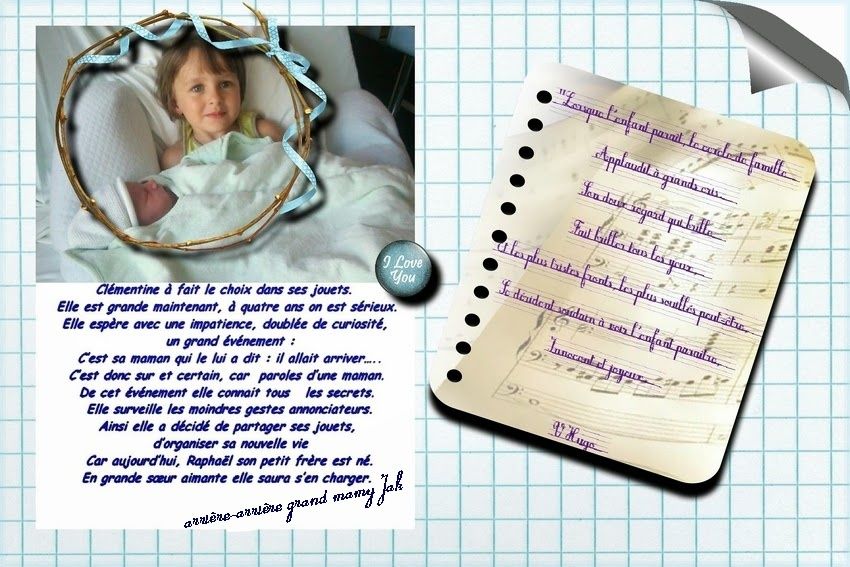 I Love
You
Clémentine à fait le choix dans ses jouets.
Elle est grande maintenant, à quatre ans on est sérieux.
Elle espère avec une impatience, doublée de curiosité,
un grand événement :
C'est sa maman qui le lui a dit : il allait arriver.....
C'est donc sur et certain, car paroles d'une maman.
De cet événement elle connait tous les secrets.
Elle surveille les moindres gestes annonciateurs.
Ainsi elle a décidé de partager ses jouets,
d'organiser sa nouvelle vie
Car aujourd'hui, Raphaël son petit frère est né.
En grande sœur aimante elle saura s'en charger.
arrière-arrière grand mamy Jak
"Lorsque l'enfant parait, le cercle de famille
Applaudit à grands cris.
Son doux regard qui brille
Fait briller tous les yeux,
Et les plus tristes fronts, les plus souillés peut-être,
Se dérident soudain à voir l'enfant paraitre,
Innocent et joyeux...
V. Hugo